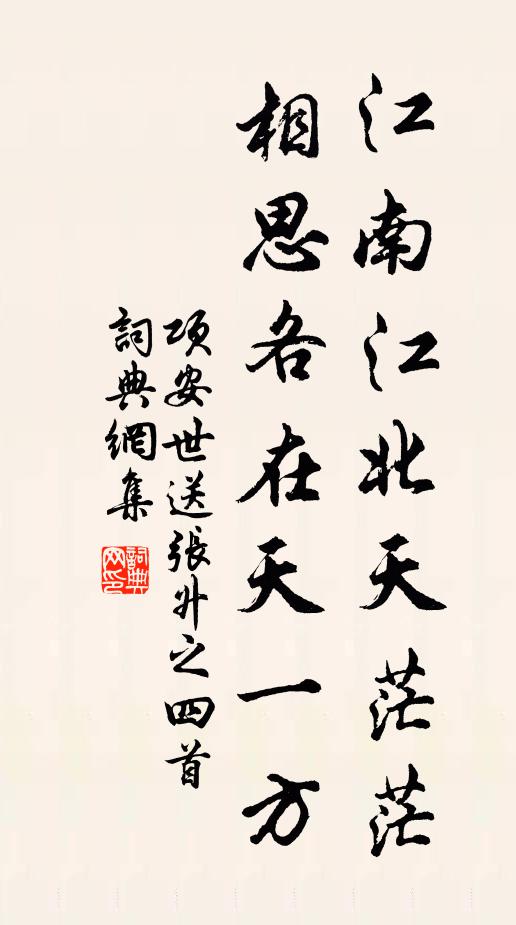 江南江北天茫茫
相思各在天一方
項安世送張升之四首
詞典網集
詞典网印